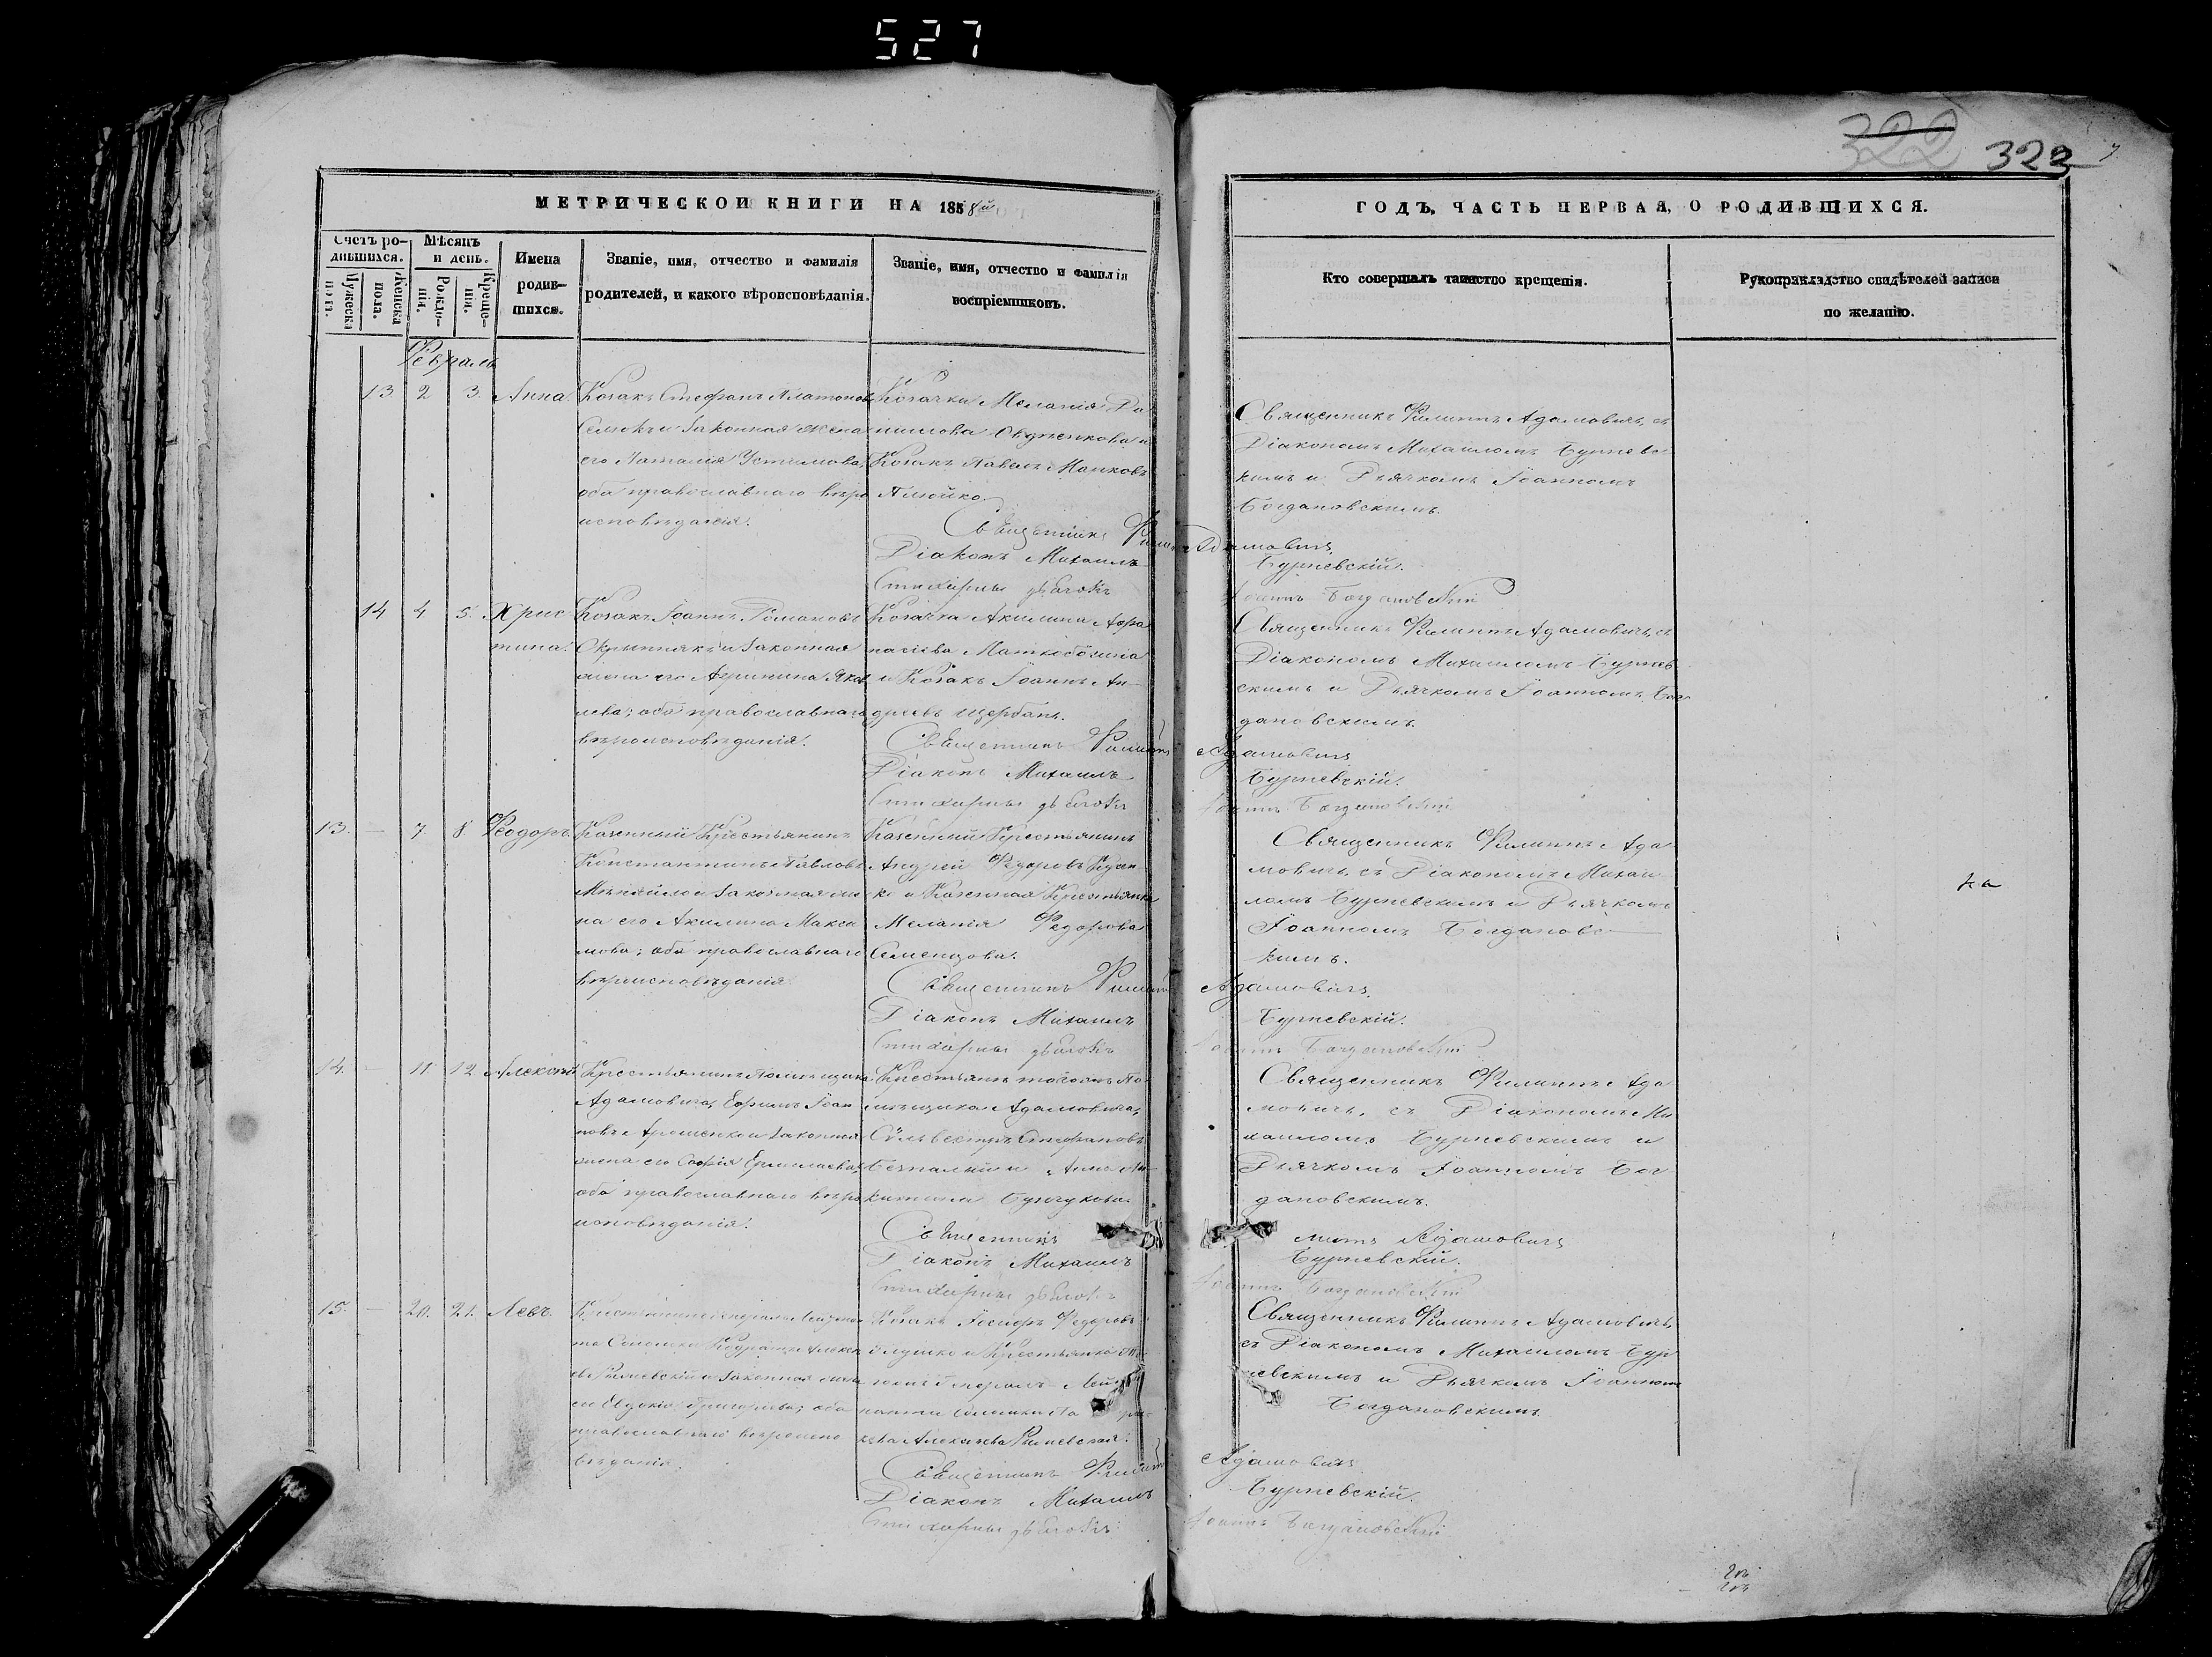 527
322
323
МЕТРИЧЕСКОЙ КНИГИ НА 1858й
ГОДЪ, ЧАСТЬ ПЕРВАЯ, О РОДИВШИХСЯ.
Счетъ родившихся.
Мужеска пола.
Женска пола.
Мѣсяцъ и день.
Рожденія.
Крещенія.
Имена
родив-
шихся.
Званіе, имя, отчество и фамилія
родителей, и какого вѣроисповѣданія.
Званіе, имя, отчество и фамилія
воспріемниковъ.
Кто совершалъ таинство крещенія.
Рукоприкладство свидѣтелей записи
по желанію.
Февраль
13. 2 3. Анна
Козакъ Стефанъ Платоновъ
и законная жена
его Наталія Устимова,
оба православнаго вѣро
исповѣданія.
Козачка Меланія Да
нилова и
Козакъ Павелъ
Священникъ Филиппъ Адамовичъ, съ
Діакономъ Михаиломъ Бурнев
кимъ и Дьячкомъ Іоанномъ
Богдановскимъ.
Священникъ Филиппъ Адамовичъ,
Діаконъ Михаилъ Бурневскій.
Стихарный дьячокъ Іоаннъ Богдановскій
14 4 5. Хрис
тина.
Козакъ Іоаннъ Романовъ
и законная
жена его Яков
лева; оба православнаго
вѣроисповѣданія.
Козачка Акилина Афа
насіева
и Козакъ Іоаннъ Ан-
дреевъ Щербанъ.
Священникъ Филиппъ Адамовичъ, съ
Діакономъ Михаиломъ Бурнев
скимъ и Дьячкомъ Іоанномъ Бог
дановскимъ.
Священникъ Филиппъ Адамовичъ
Діаконъ Михаилъ Бурневскій.
Стихарный дьячокъ Іоаннъ Богдановскій
13. — 7. 8. Феодоръ
Казенный Крестьянинъ
Константинъ Павловъ
и законная же
на его Акилина Макси
мова; оба православнаго
вѣроисповѣданія.
Казенный Крестьянинъ
Андрей Федоровъ
и Казенная Крестьянка
Меланія Федорова
Семенцова.
Священникъ Филиппъ Ада
мовичъ, съ Діакономъ Михаи
ломъ Бурневскимъ и Дьячкомъ
Іоанномъ Богдановс
кимъ.
Священникъ Филиппъ Адамовичъ.
Діаконъ Михаилъ Бурневскій.
Стихарный дьячокъ Іоаннъ Богдановскій
14. — 11 12 Алексій
Крестьянинъ Помѣщика
Адамовича, Ефимъ Іоан
новъ и законная
жена его Софія
оба православнаго вѣро
исповѣданія.
Крестьянъ того жъ По
мѣщика Адамовича,
Сильвестръ Стефановъ
Безпалый и Анна Ни
китина
Священникъ Филиппъ Ада
мовичъ, съ Діакономъ Ми
хаиломъ Бурневскимъ и
Дьячкомъ Іоанномъ Бог
дановскимъ.
Священникъ липъ Адамовичъ
Діаконъ Михаилъ Бурневскій.
Стихарный дьячокъ Іоаннъ Богдановскій
15. — 20. 21. Левъ.
и законная жена
его Евдокія Григорьева; оба
православнаго вѣроиспо
вѣданія.
Козакъ Федоровъ
Священникъ Филиппъ Адамовичъ,
съ Діакономъ Михаиломъ Бур
невскимъ и Дьячкомъ Іоанномъ
Богдановскимъ.
Священникъ Филиппъ Адамовичъ
Діаконъ Михаилъ Бурневскій.
Стихарный дьячокъ Іоаннъ Богдановскій